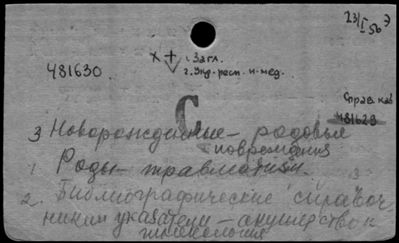 23/I 56 Э
× + 1. Загл.
481630.
Справ. каб
481629
С
3 Новорожденные – родовые
повреждения
1. Роды – травматизм.
2. Библиографические справоч
ники указатели – акушерство и
гинекология